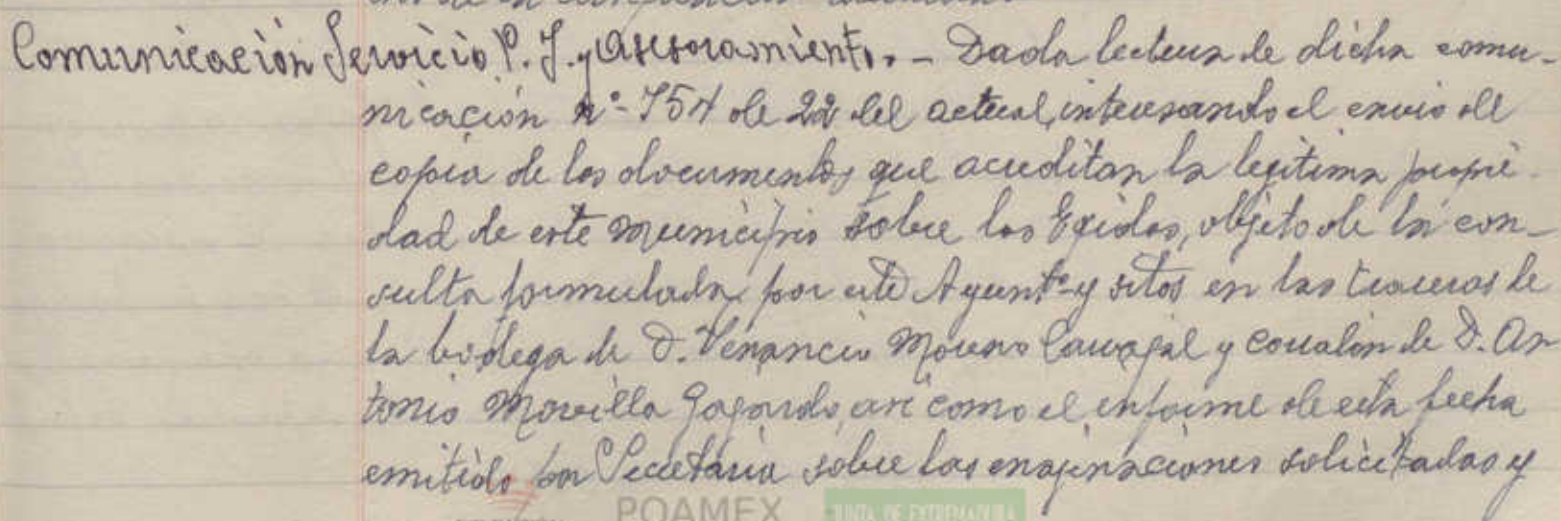 Comunicación Servicio P. J. y Asesoramiento. - Dada lectura de dicha comu-
nicación nº- 754 de 22 del actual, interesando el envio del
copia de los documentos que acreditan la legitima propie-
dad de este municipio sobre los Egidos, objeto de la con-
sulta formulada por este Ayuntº y sitos en las traseras de
la bodega de D. Venancio Moreno Carvajal y corralon de D. An
tonio Morilla Gajardo, asi como el informe de esta fecha
emitido por Secretaria sobre las enajenaciones solicitadas y
POAMEX JUNTA DE EXTREMADURA